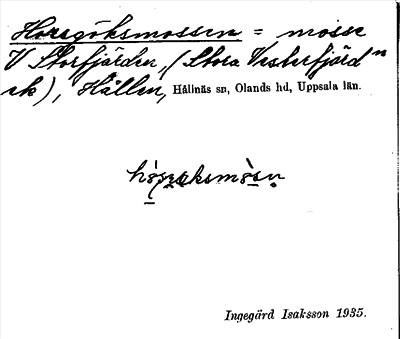 Horsgöksmossen = mosse
V Storfjärden, (Stora Vesterfjärd n
ek), Hållen, Hållnäs sn, Olands hd, Uppsala län.
Ingegärd Isaksson 1935.